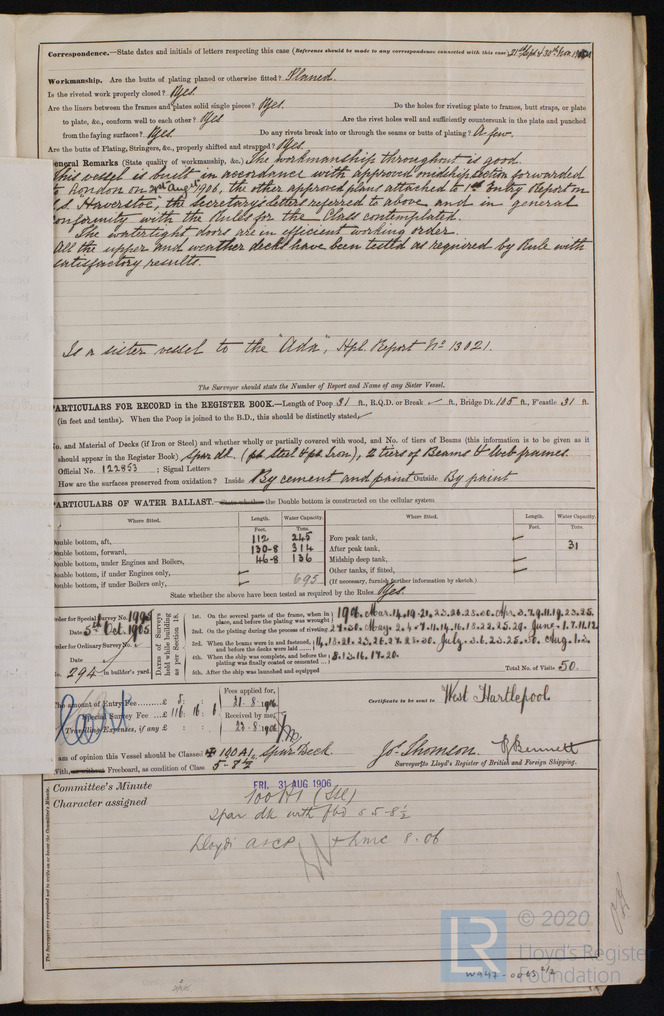 Correspondence.—State dates and initials of letters respecting this case (Reference should be made to any correspondence connected with this case) 21st Sept & 30th Nov. 1905
Workmanship. Are the butts of plating planed or otherwise fitted? Planed.
Is the riveted work properly closed? Yes.
Are the liners between the frames and plates solid single pieces? Yes. Do the holes for riveting plate to frames, butt straps, or plate
to plate, &c., conform well to each other? Yes Are the rivet holes well and sufficiently countersunk in the plate and punched
from the faying surfaces? Yes. Do any rivets break into or through the seams or butts of plating? A few.
Are the butts of Plating, Stringers, &c., properly shifted and strapped? Yes.
General Remarks (State quality of workmanship, &c.) The workmanship throughout is good.
This vessel is built in accordance with approved midship section forwarded
to London on Augst 1906, the other approved plans attached to 1st Entry Report on
s.s. Haverstoe, the Secretary's letters referred to above and in general
conformity with the Rules for the Class contemplated.
The watertight doors are in efficient working order.
All the upper and weather decks have been tested as required by Rule with
satisfactory results.
Is a sister vessel to the "Ada", Hpl. Report No 13021.
The Surveyor should state the Number of Report and Name of any Sister Vessel.
PARTICULARS FOR RECORD in the REGISTER BOOK.—Length of Poop 31 ft., R.Q.D. or Break ft., Bridge Dk. 105 ft., F'castle 31 ft.
(in feet and tenths). When the Poop is joined to the B.D., this should be distinctly stated
No. and Material of Decks (if Iron or Steel) and whether wholly or partially covered with wood, and No. of tiers of Beams (this information is to be given as it
should appear in the Register Book) Spar dk. (pt Steel & pt Iron), 2 tiers of Beams & Web frames.
Official No. 122853 ; Signal Letters
How are the surfaces preserved from oxidation? Inside By cement and paint Outside By paint
PARTICULARS OF WATER BALLAST.—State whether the Double bottom is constructed on the cellular system
Where fitted. Length. Water Capacity. Where fitted. Length. Water Capacity.
Feet. Tons. Feet. Tons.
Double bottom, aft, 112 245 Fore peak tank,
Double bottom, forward, 130-8 314 After peak tank, 31
Double bottom, under Engines and Boilers, 46-8 136 Midship deep tank,
Double bottom, if under Engines only, Other tanks, if fitted,
Double bottom, if under Boilers only, 695 (If necessary, furnish further information by sketch.)
State whether the above have been tested as required by the Rules Yes.
Order for Special Survey No. 1995
Date 5th Oct. 1905
Order for Ordinary Survey No.
Date
No. 294 in builder's yard.
Dates of Surveys held while building as per Section 18.
1st. On the several parts of the frame, when in place, and before the plating was wrought 1906. Mar. 14.19.21.23.26.28.30. Apr. 3.7.9.11.19.23.25.
2nd. On the plating during the process of riveting 27.30. May. 2.4.7.11.14.16.18.22.25.29. June. 1.7.11.12.
3rd. When the beams were in and fastened, and before the decks were laid 14.18.21.23.26.27.28.30. July. 3.6.23.25.30. Aug. 1.3.
4th. When the ship was complete, and before the plating was finally coated or cemented 8.13.16.17.20.
5th. After the ship was launched and equipped Total No. of Visits 50.
The amount of Entry Fee £ 5 : :
Special Survey Fee £ 116 : 16 : 1
Travelling Expenses, if any £ : :
Fees applied for,
21.8.1906
Received by me,
24.8.1906
Certificate to be sent to West Hartlepool
I am of opinion this Vessel should be Classed ✠ 100A1, Spar Deck
With, or without Freeboard, as condition of Class 5-8½
Jos. Thomson. R Bennett
Surveyors to Lloyd's Register of British and Foreign Shipping.
Committee's Minute FRI. 31 AUG 1906
Character assigned 100A1 (Stl)
Spar dk with fbd 5-8½
Lloyds A&CP + Lmc 8.06
The Surveyors are requested not to write on or below the Committee's Minute.
© 2020
LR Lloyd's Register
Foundation
W947-0065 2/2